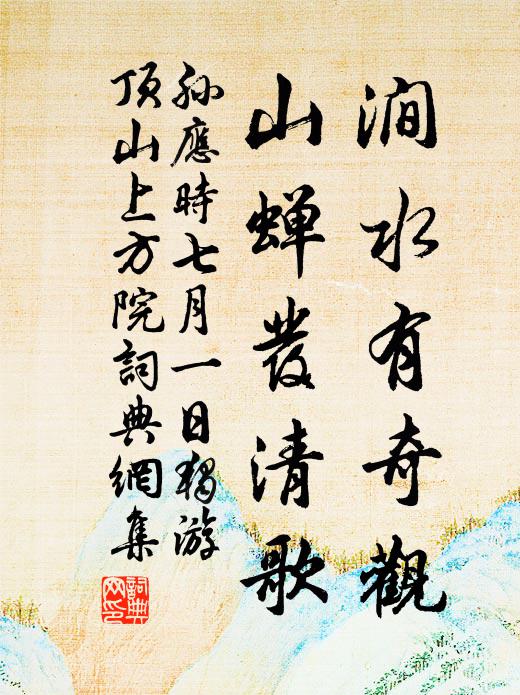 澗水有奇觀
山蟬發清歌
孫應時七月一日獨游
頂山上方院詞典網集
詞典網印